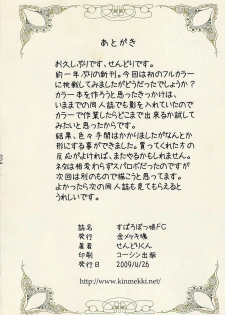 あとがき
お久しぶりです、せんどりです。
約一年ぶりの新刊。今回は初のフルカラー
に挑戦してみましたがどうだったでしょうか?
カラー本を作ろうと思ったきっかけは、
いままでの同人誌でも影を入れていたので
カラーで作業したらどこまで出来るか試して
みたいと思ったからです。
結果、色々手間はかかりましたがなんとか
形にする事ができました。買ってくれた方の
反応がよければ、またやるかもしれません。
ネタは相変わらずスパロボだったのです
が次回は別のもので描こうと思ってます。
よかったら次の同人誌も見てもらえると
うれしいです。
誌名 すぱろぼっ娘FC
発行 金メッキ魂
著者 せんどりくん
印刷 コーシン出版
発行日 2009/4/26
http://www.kinmekki.net/